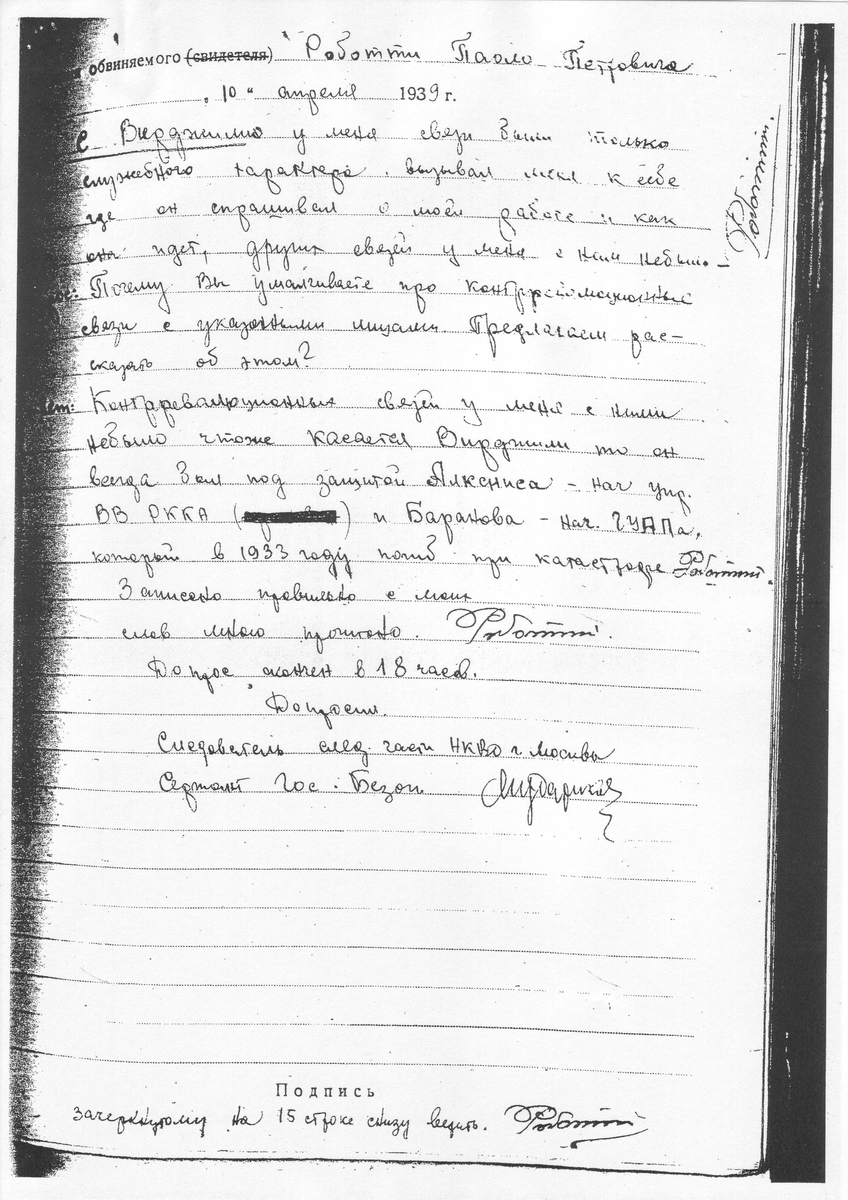 обвиняемого (свидетеля) Роботти Паоло Петровича
„10“ апреля 1939 г.
С Вирджилио у меня связи были только
служебного характера. вызывал меня к себе
где он спрашивал о моей работе и как
она идет, других связей у меня с ним небыло –
Почему Вы умалчиваете про контрреволюционные
связи с указанными лицами. Предлагаем рас–
сказать об этом?
ет: Контрреволюционных связей у меня с ними
небыло чтоже касается Вирджили то он
всегда был под защитой Алксниса – нач упр.
ВВ РККА ( ) и Баранова – нач. ГУАПа,
который в 1933 году погиб при катастрофе Роботти.
Записано правильно с моих
слов мною прочитано. Роботти.
Допрос окончен в 18 часов.
Допросил.
Следователь след. части НКВД г Москвы
Сержант Гос. Безоп.
Подпись
Зачеркнутому на 15 строке снизу верить. Роботти